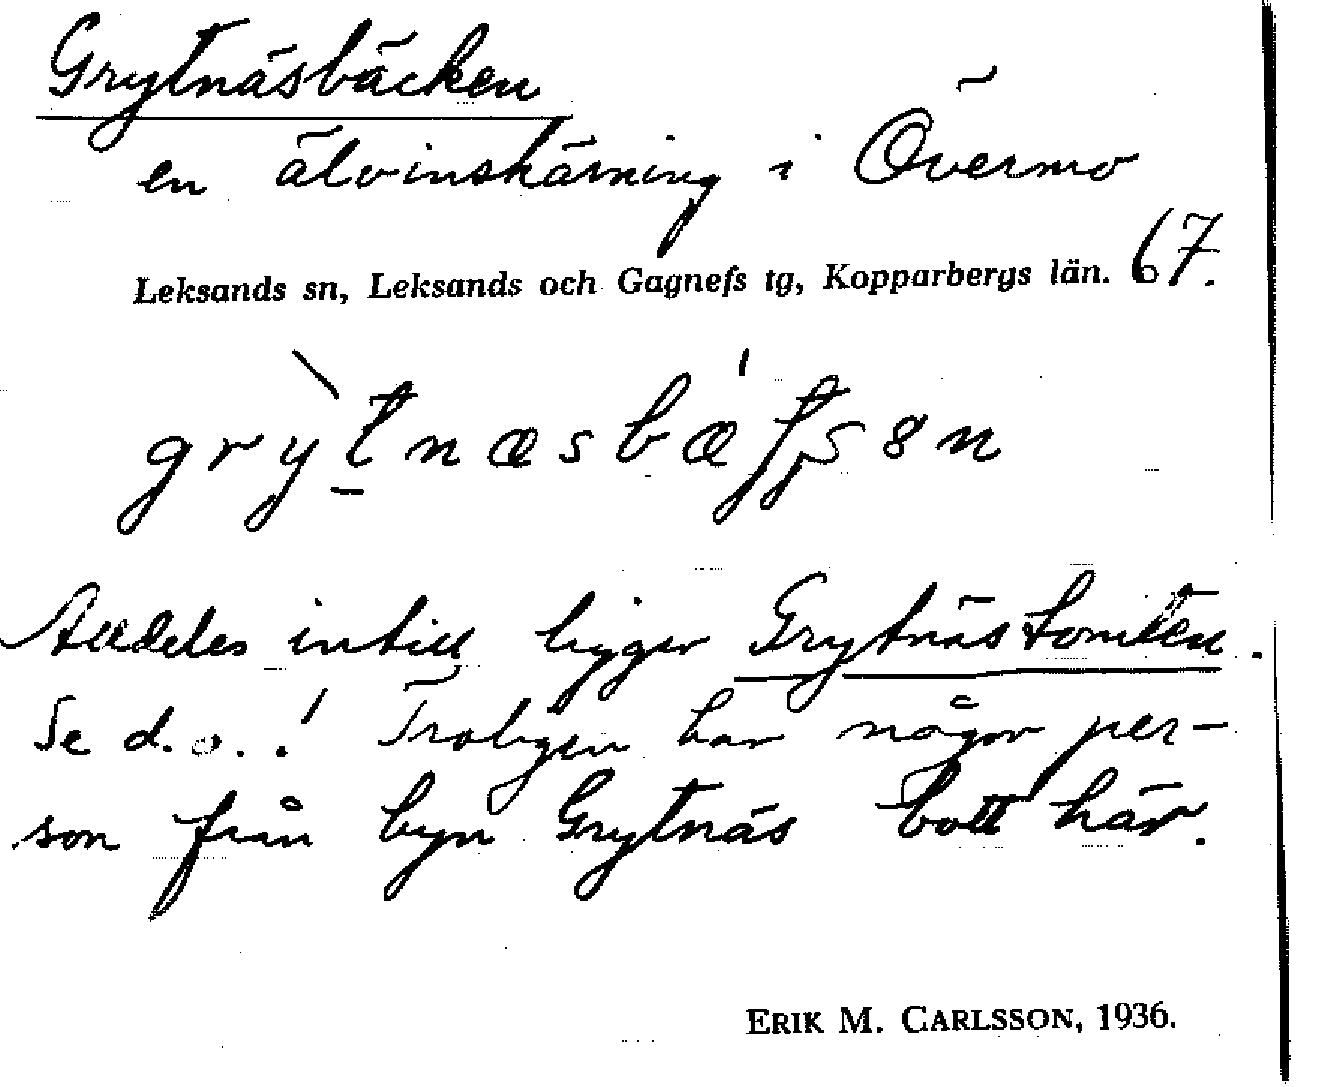 Grytnäsbäcken
en älvinskärning i Övermo
Leksands sn, Leksands och Gagnefs tg, Kopparbergs län. 67.
Alldeles intill ligger Grytnästomten.
Se d. o.! Troligen har någon per-
son från byn Grytnäs bott här.
ERIK M. CARLSSON, 1936.